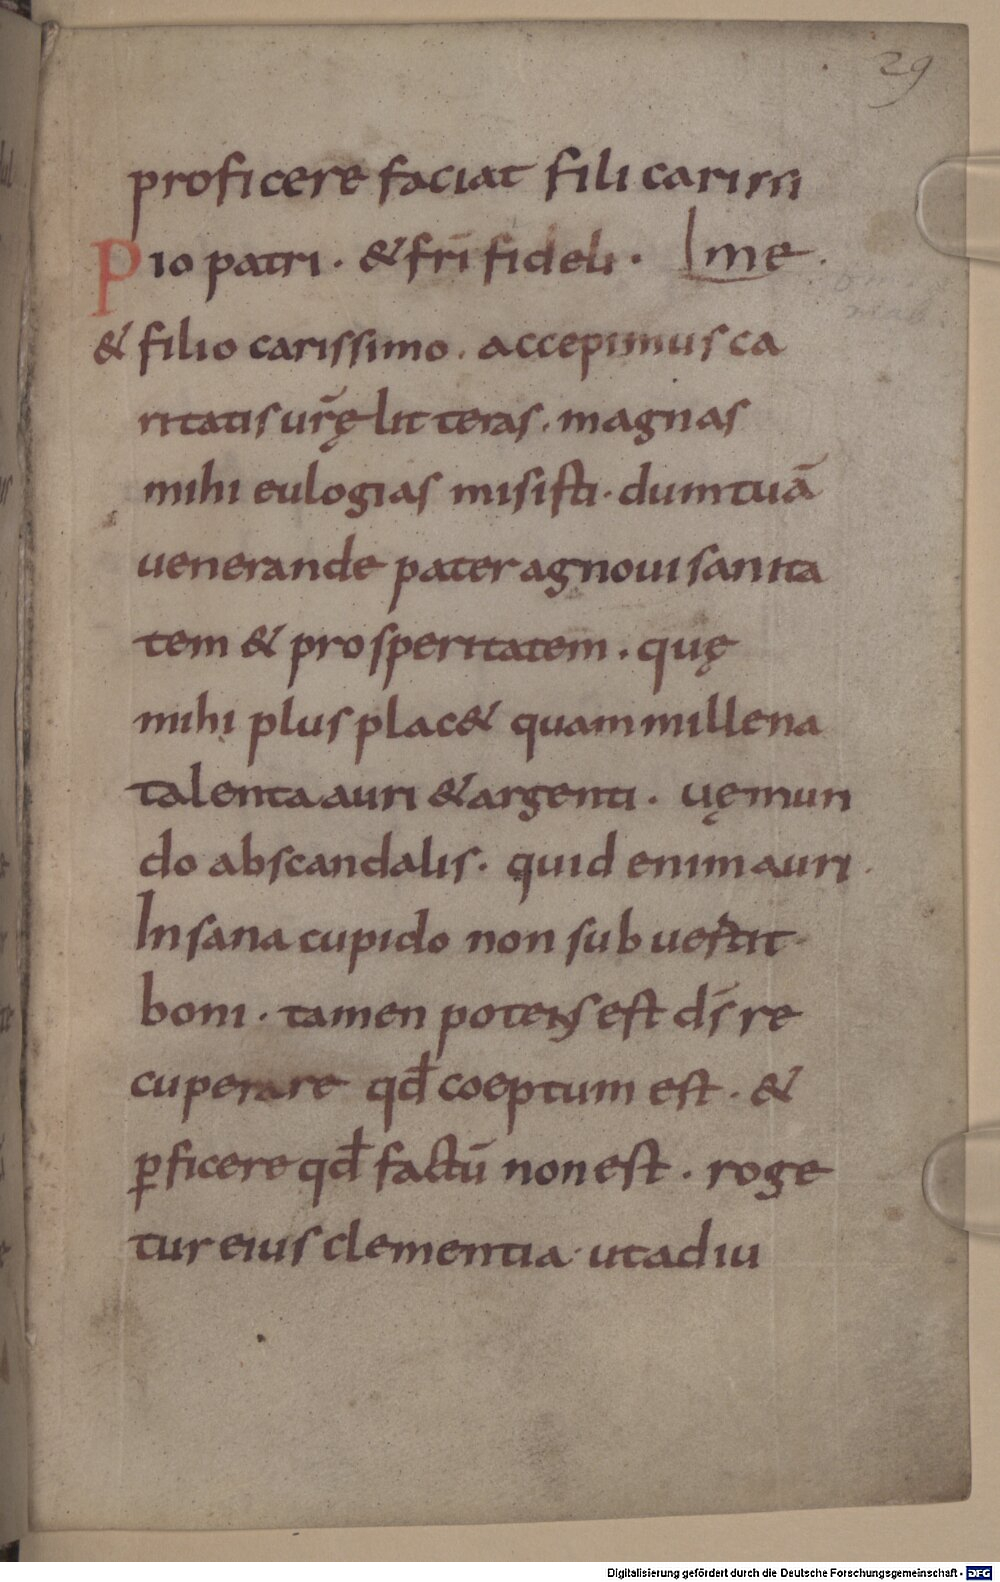 29
proficere faciat fili carissi
me.
Pio patri. & fr̄i fideli.
& filio carissimo. accepimus ca
ritatis ur̄ę litteras. magnas
mihi eulogias misisti. dum tuā
uenerande pater agnoui sanita
tem & prosperitatem. quę
mihi plus plac& quam millena
talenta auri & argenti. uę mun
do ab scandalis. quid enim auri
Insana cupido non subuertit
boni. tamen potens est d̄s re
cuperare qđ coeptum est. &
ꝑficere qđ factū non est. roge
tur eius clementia. ut adiu
Digitalisierung gefördert durch die Deutsche Forschungsgemeinschaft - DFG